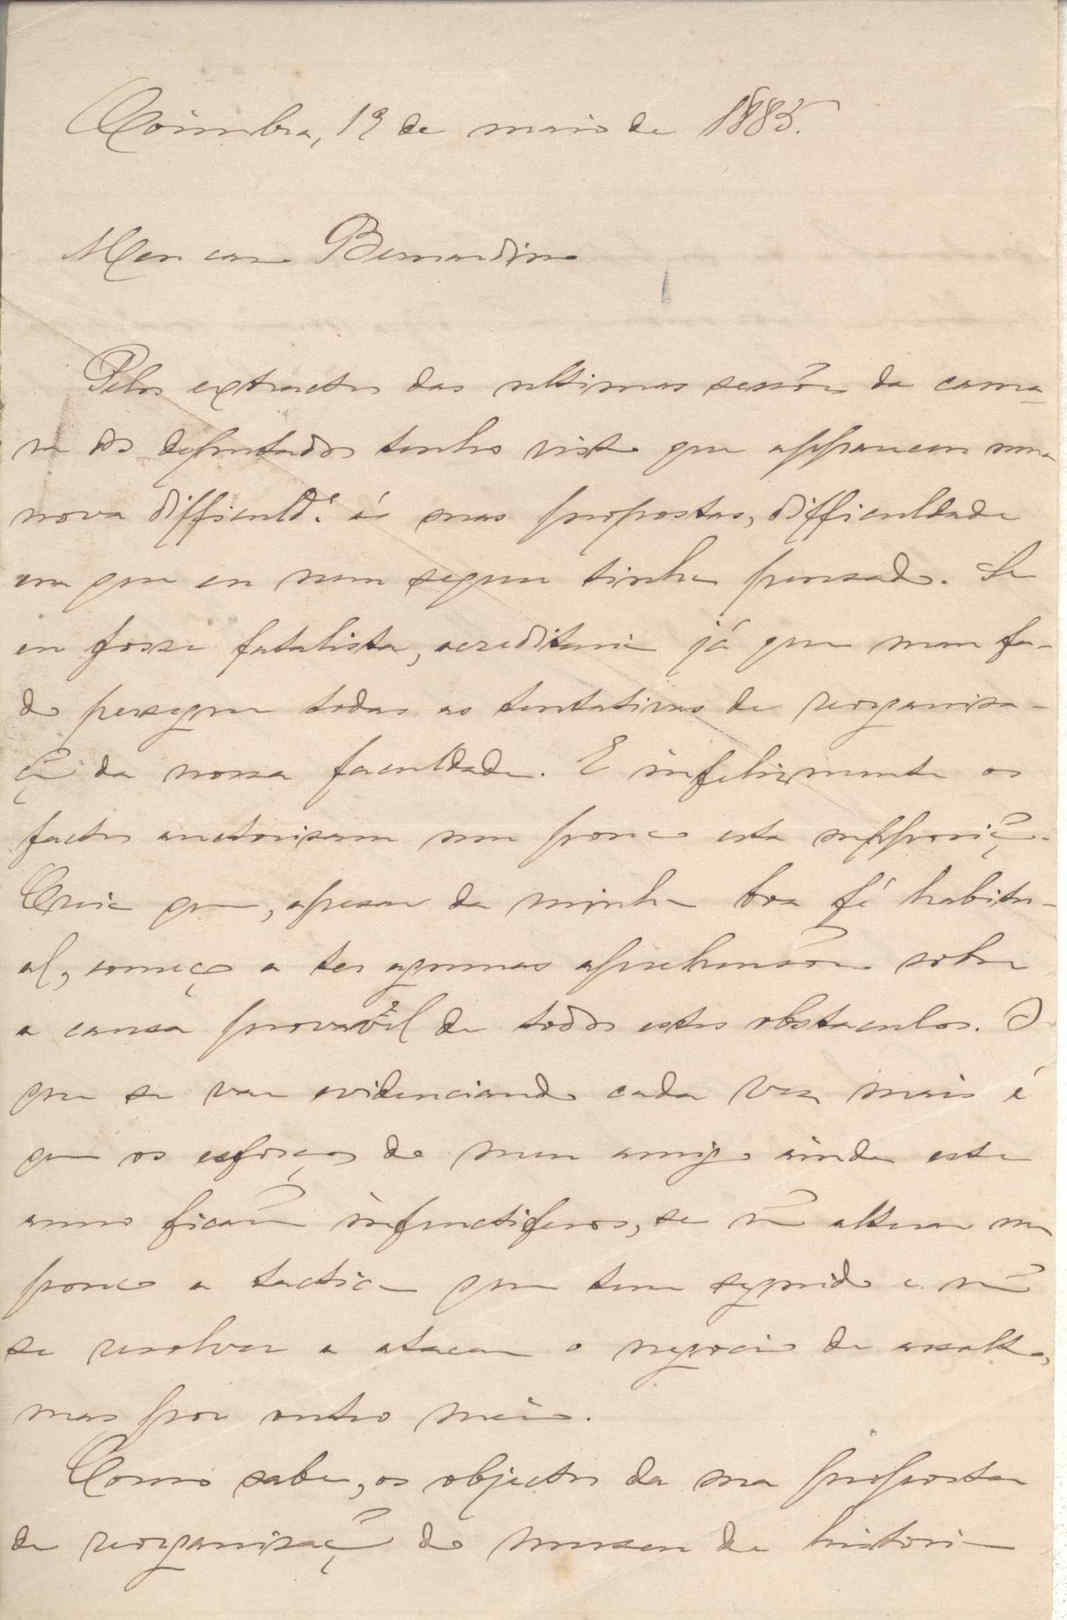 Coimbra, 19 de maio de 1885.
Meu caro Bernardino
Pelos extractos das ultimas sessões da cama-
ra dos deputados tenho visto que appareceu uma
nova difficuld.e ás suas propostas, difficuldade
em que eu nem sequer tinha pensado. Se
eu fosse fatalista, acreditaria já que mau fa-
do persegue todas as tentativas de reorganisa-
ção da nossa faculdade. E infelizmente os
factos auctorisam um pouco esta supposição.
Creia que, apesar da minha boa fé habitu-
al, começo a ter algumas aprehensões sobre
a causa provavel de todos estes obstaculos. O
que se vae evidenciando cada vez mais é
que os esforços do meu amigo ainda este
anno ficarão infructiferos, se não alterar um
pouco a tactica que tem seguido e não
se resolver a atacar o negocio de assalto,
mas por outro meio.
Como sabe, os objectos da sua proposta
de reorganisação do museu de historia